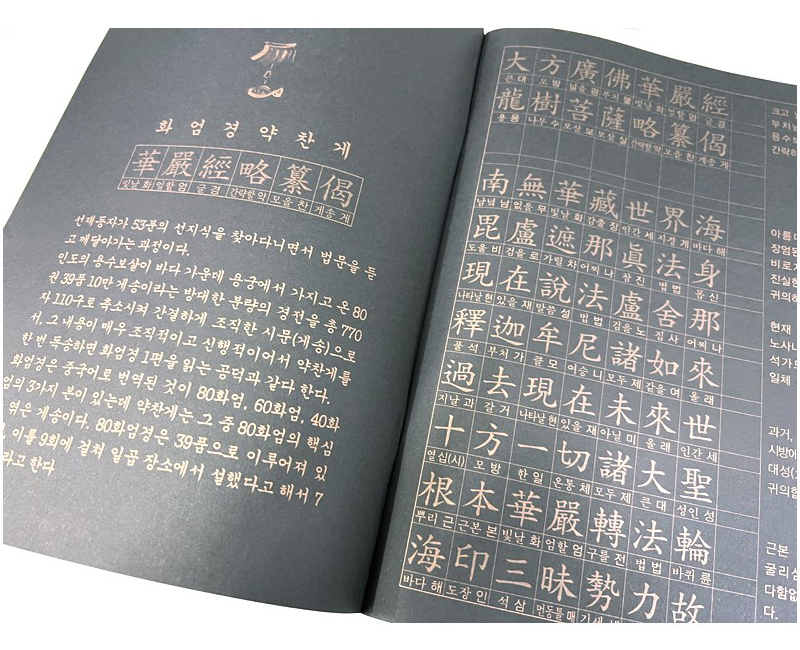 화엄경약찬게
華嚴經略纂偈
빛날 화 엄할 엄 글 경 간략할 약 모을 찬 게송 게
선재동자가 53분의 선지식을 찾아다니면서 법문을 듣
고 깨달아가는 과정이다.
인도의 용수보살이 바다 가운데 용궁에서 가지고 온 80
권 39품 10만 게송이라는 방대한 분량의 경전을 총 770
자 110구로 축소시켜 간결하게 조직한 시문(게송)으로
서, 그 내용이 매우 조직적이고 신행적이어서 약찬게를
한번 독송하면 화엄경 1편을 읽는 공덕과 같다 한다.
화엄경은 중국어로 번역된 것이 80화엄, 60화엄, 40화
엄의 3가지 본이 있는데 약찬게는 그 중 80화엄의 핵심
엮은 게송이다. 80화엄경은 39품으로 이루어져 있
, 이를 9회에 걸쳐 일곱 장소에서 설했다고 해서 7
라고 한다
大方廣佛華嚴經
큰 대 모 방 넓을 광 부처 불 빛날 화 엄할 엄 글 경
龍樹菩薩略纂偈
용 용 나무 수 보살 보 보살 살 간략할 약 모을 찬 게송 게
南無華藏世界海
남녘 남 없을 무 빛날 화 감출 장 인간 세 지경 계 바다 해
毘盧遮那眞法身
도울 비 검을 로 가릴 차 어찌 나 참 진 법 법 몸 신
現在說法盧舍那
나타날 현 있을 재 말씀 설 법 법 검을 노 집 사 어찌 나
釋迦牟尼諸如來
풀 석 부처 가 클 모 여승 니 모두 제 같을 여 올 래
過去現在未來世
지날 과 갈 거 나타날 현 있을 재 아닐 미 올 래 인간 세
十方一切諸大聖
열 십(시) 모 방 한 일 온통 체 모두 제 큰 대 성인 성
根本華嚴轉法輪
뿌리 근 근본 본 빛날 화 엄할 엄 구를 전 법 법 바퀴 륜
海印三昧勢力故
바다 해 도장 인 석 삼 먼동틀 매 기세 세
크고
부처님
용수보
간략하
아름다
장엄된
비로자
진실한
귀의하
현재
노사나
석가모
일체
과거,
시방에
대성(
귀의합
근본
굴리심
다함없
다.